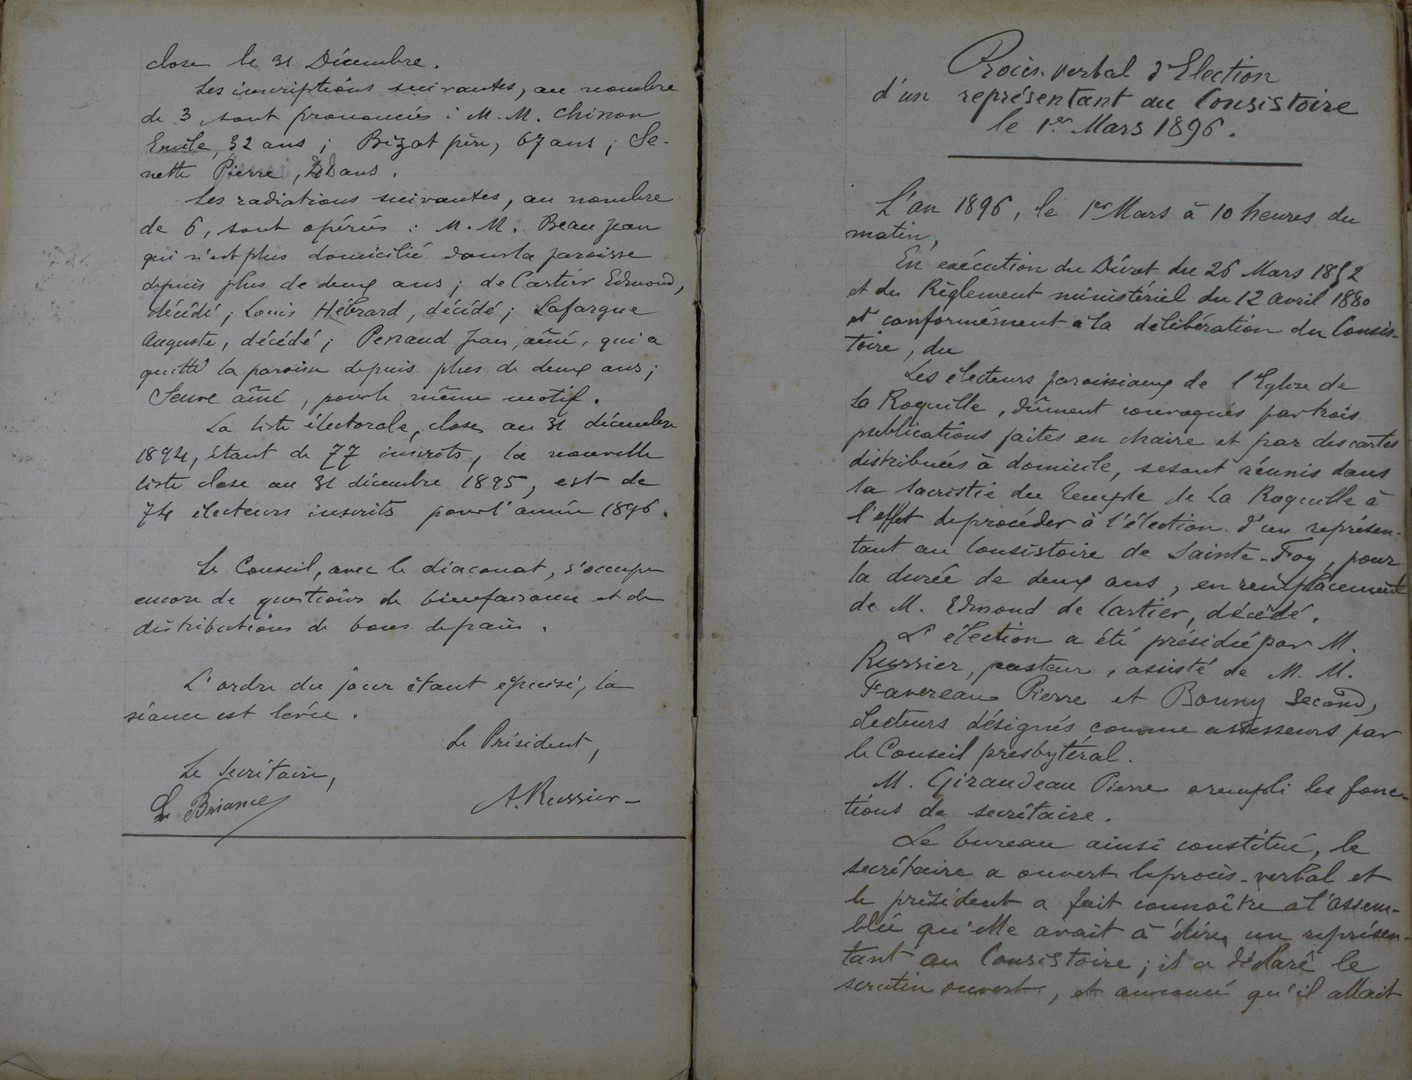 close le 31 Décembre.
Les inscriptions suivantes, au nombre
de 3, sont prononcées : M. M. Chinon
Emile, 32 ans ; Bizat père, 67 ans ; Se-
nette Pierre, ans.
Les radiations suivantes, au nombre
de 6, sont opérées : M. M. Beau Jean
qui n'est plus domicilié dans la paroisse
depuis plus de deux ans ; de Cartier Edmond,
décédé ; Louis Hébrard, décédé ; Lafargue
Auguste, décédé ; Penaud Jean, aîné, qui a
quitté la paroisse depuis plus de deux ans ;
Seuve aîné, pour le même motif.
La liste électorale, close au 31 décembre
1894, étant de 77 inscrits, la nouvelle
liste close au 31 décembre 1895, est de
74 électeurs inscrits pour l'année 1896.
Le Conseil, avec le diaconat, s'occupe
encore de questions de bienfaisance et de
distributions de bons de pain.
L'ordre du jour étant épuisé, la
séance est levée.
Le Président,
Le Secrétaire,
L. Briance
A. Russier
Procès-verbal d'Election
d'un représentant au Consistoire
le 1er Mars 1896.
L'an 1896, le 1er Mars à 10 heures du
matin,
En exécution du Décret du 26 Mars 1852
et du Règlement ministériel du 12 avril 1880
et conformément à la délibération du Consis-
toire, du
Les électeurs paroissiaux de l'Eglise de
La Roquille, dûment convoqués par trois
publications faites en chaire et par des cartes
distribuées à domicile, se sont réunis dans
la sacristie du temple de La Roquille à
l'effet de procéder à l'élection d'un représen-
tant au Consistoire de Sainte-Foy, pour
la durée de deux ans, en remplacement
de M. Edmond de Cartier, décédé.
L'élection a été présidée par M.
Russier, pasteur, assisté de M. M.
Favereau Pierre et Bonny Second,
électeurs désignés comme assesseurs par
le Conseil presbytéral.
M. Giraudeau Pierre a rempli les fonc-
tions de secrétaire.
Le bureau ainsi constitué, le
secrétaire a ouvert le procès-verbal et
le président a fait connaître à l'assem-
blée qu'elle avait à élire un représen-
tant au Consistoire ; il a déclaré le
scrutin ouvert, et annoncé qu'il allait